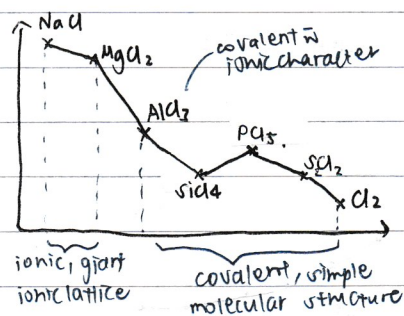 NaCl
MgCl2
covalent w̄
ionic character
AlCl3
PCl5.
SiCl4
S2Cl2
Cl2
ionic, giant
ionic lattice
covalent, simple
molecular structure